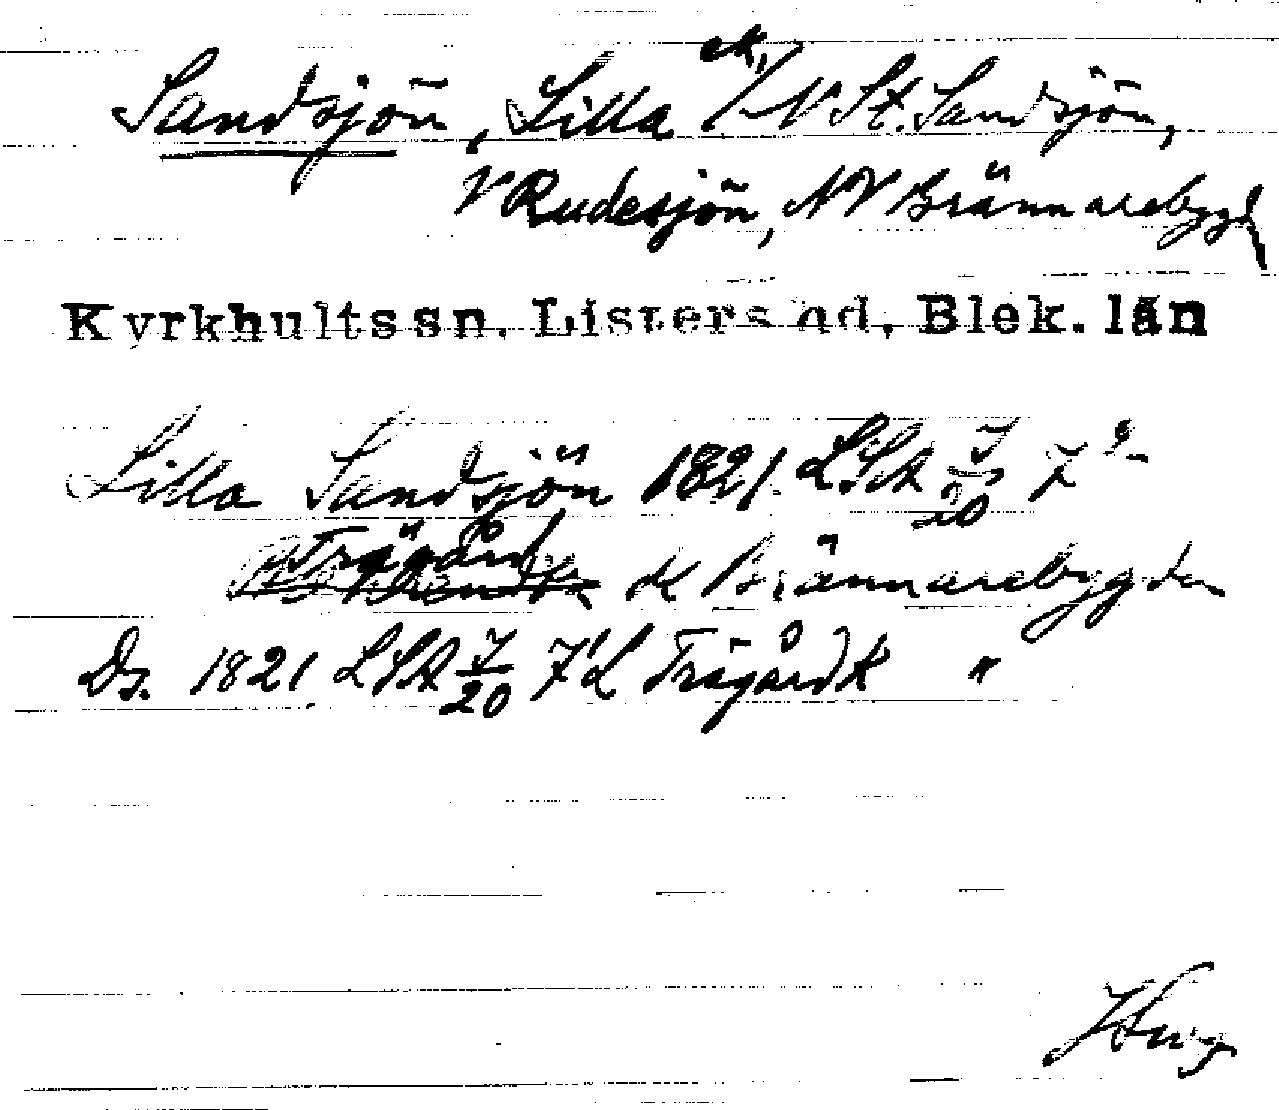 Sandsjön, Lilla ek, / N St. Sandsjön,
V Rudesjön, NV Brännarebygd
Kyrkhults sn. Listers hd, Blek. län
Lilla Sandsjön 1821 LSA I/20 7
Trägård K Brännarebygden
Ds. 1821 LSA I/20 7 L Trägård K "